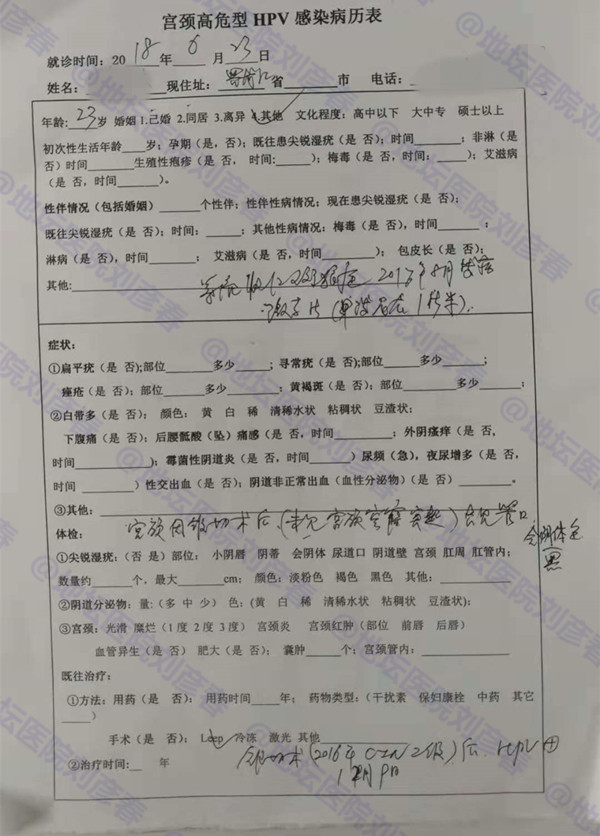 宫颈高危型 HPV 感染病历表
就诊时间：2018年6月23日
姓名：　现住址：黑龙江省　市　电话：
年龄：23岁 婚姻 1.已婚 2.同居 3.离异 4.其他 文化程度：高中以下 大中专 硕士以上
初次性生活年龄　岁；孕期（是，否）；既往患尖锐湿疣（是 否）；时间　；非淋（是
否）时间　生殖性疱疹（是 否，时间：　）；梅毒（是 否，时间：　）；艾滋病
（是 否，时间　）。
性伴情况（包括婚姻）　个性伴；性伴性病情况：现在患尖锐湿疣（是 否）；
既往尖锐湿疣（是 否）；时间：　；其他性病情况：梅毒（是 否），时间　；
淋病（是 否），时间　； 艾滋病（是 否，时间　）； 包皮长（是 否）；
其他： 2017年8月
症状：
①扁平疣（是 否）；部位　多少　；寻常疣（是 否）；部位　多少　；
痤疮（是 否）；部位　多少　；黄褐斑（是 否）：部位　多少　；
②白带多（是 否）： 颜色： 黄 白 稀 清稀水状 粘稠状 豆渣状；
下腹痛（是 否）；后腰骶酸（坠）痛感（是 否，时间　）；外阴瘙痒（是 否，
时间　）；霉菌性阴道炎（是 否，时间　）尿频（急），夜尿增多（是 否，
时间　）性交出血（是 否）；阴道非正常出血（血性分泌物）（是 否）　。
③其他： 宫颈锥切术后
体检：
①尖锐湿疣：（否 是）部位： 小阴唇 阴蒂 会阴体 尿道口 阴道壁 宫颈 肛周 肛管内；
数量约　个，最大　cm； 颜色：淡粉色 褐色 黑色 其他：
会阴体色黑
②阴道分泌物：量：（多 中 少） 色：（黄 白 稀 清稀水状 粘稠状 豆渣状）；
③宫颈：光滑 糜烂（1度 2度 3度） 宫颈炎 宫颈红肿（部位 前唇 后唇）
血管异生（是 否） 肥大（是 否）； 囊肿　个；宫颈管内：
既往治疗：
①方法：用药（是 否）： 用药时间　年； 药物类型：（干扰素 保妇康栓 中药 其它
　）
手术（是 否）： Leep 冷冻 激光 其他
锥切术（2016年 CIN 2级）后 HPV ⊕
②治疗时间：　年
@地坛医院刘彦春